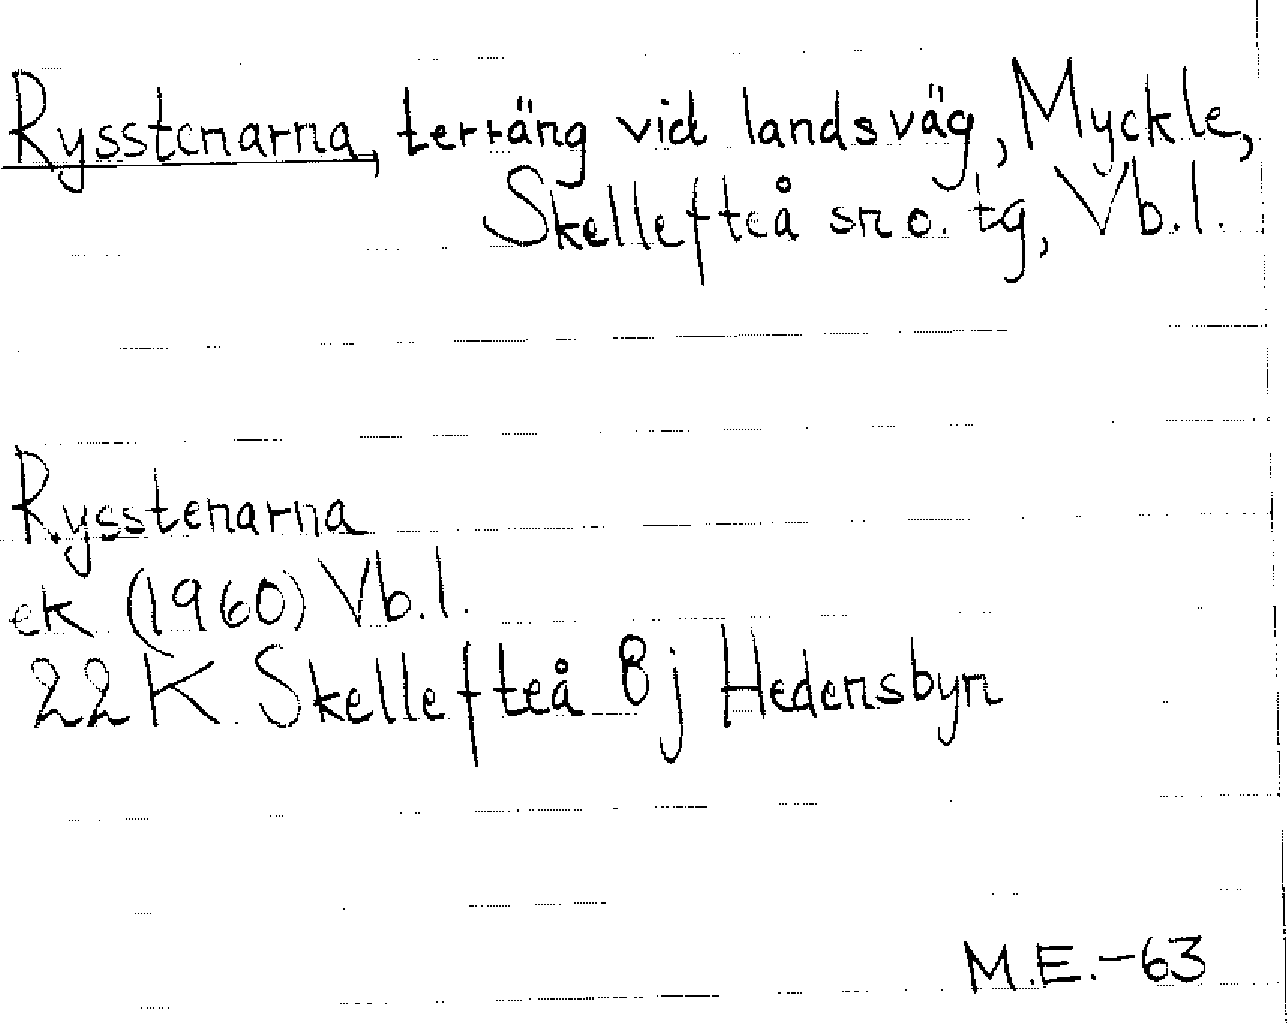 Rysstenarna, terräng vid landsväg, Myckle,
Skellefteå sn o. tg, Vb.l.
Rysstenarna
ek (1960) Vb.l.
22 K Skellefteå 8j Hedensbyn
M.E.-63